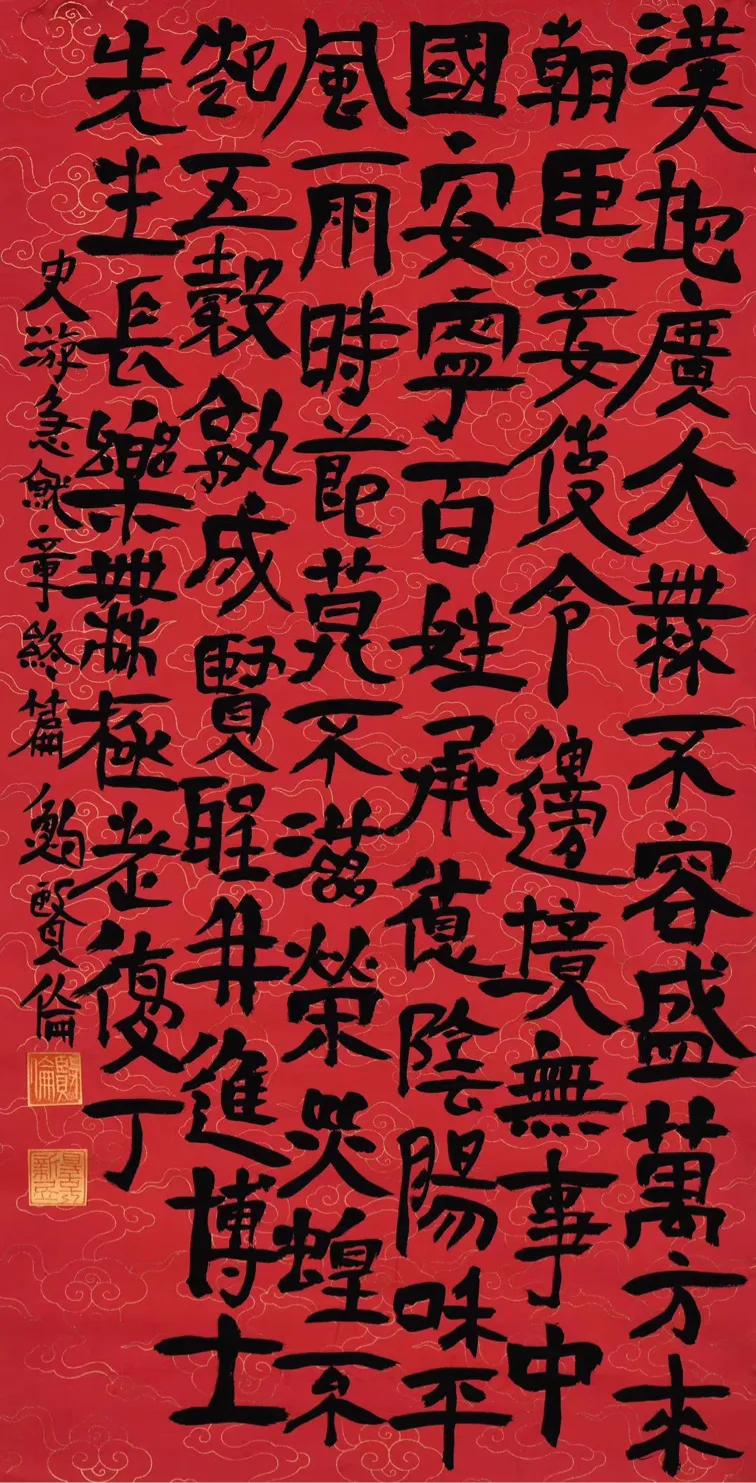 漢地廣大無不容盛萬方來
朝臣妾使令邊境無事中
國安寧百姓承德陰陽和平
風雨時節莫不滋榮災蝗不
起五穀孰成賢聖並進博士
先生長樂無極老復丁
史游急就章終篇 賢倫
賢倫